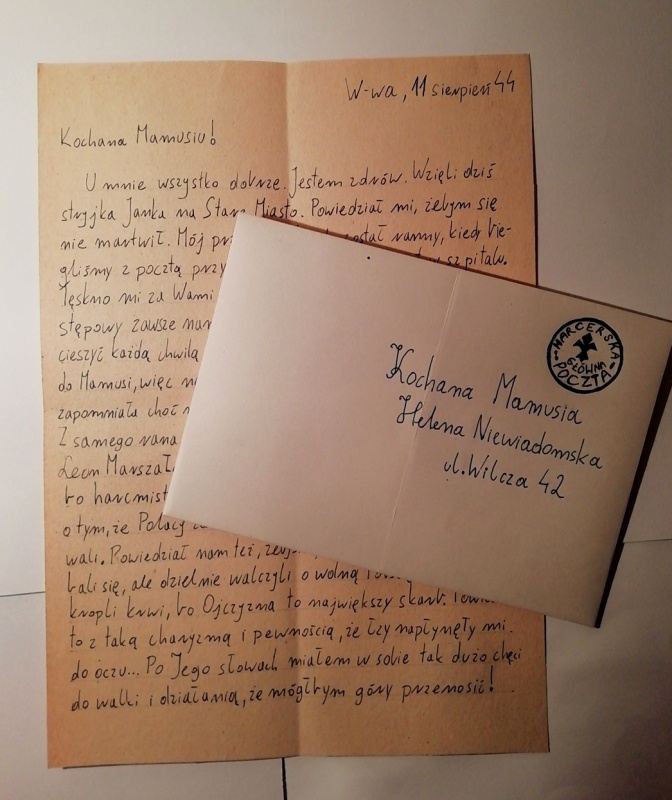 W-wa, 11 sierpień 44
Kochana Mamusiu!
U mnie wszystko dobrze. Jestem zdrów. Wzięli dziś
stryjka Janka na Stare Miasto. Powiedział mi, żebym się
nie martwił. Mój został ranny, kiedy bie-
gliśmy z pocztą przy szpitalu.
Tęskno mi za Wami
stępowy zawsze
cieszyć każdą chwilą
do Mamusi, więc
zapomniała choć
Z samego rana
Leon
bo harcmist
o tym, że Polacy
wali. Powiedział nam też,
bali się, ale dzielnie walczyli o wolną
kropli krwi, bo Ojczyzna to największy skarb.
to z taką charyzmą i pewnością, że łzy napłynęły mi
do oczu... Po Jego słowach miałem w sobie tak dużo chęci
do walki i działania, że mógłbym góry przenosić!
HARCERSKA
GŁÓWNA
POCZTA
Kochana Mamusia
Helena Niewiadomska
ul. Wilcza 42